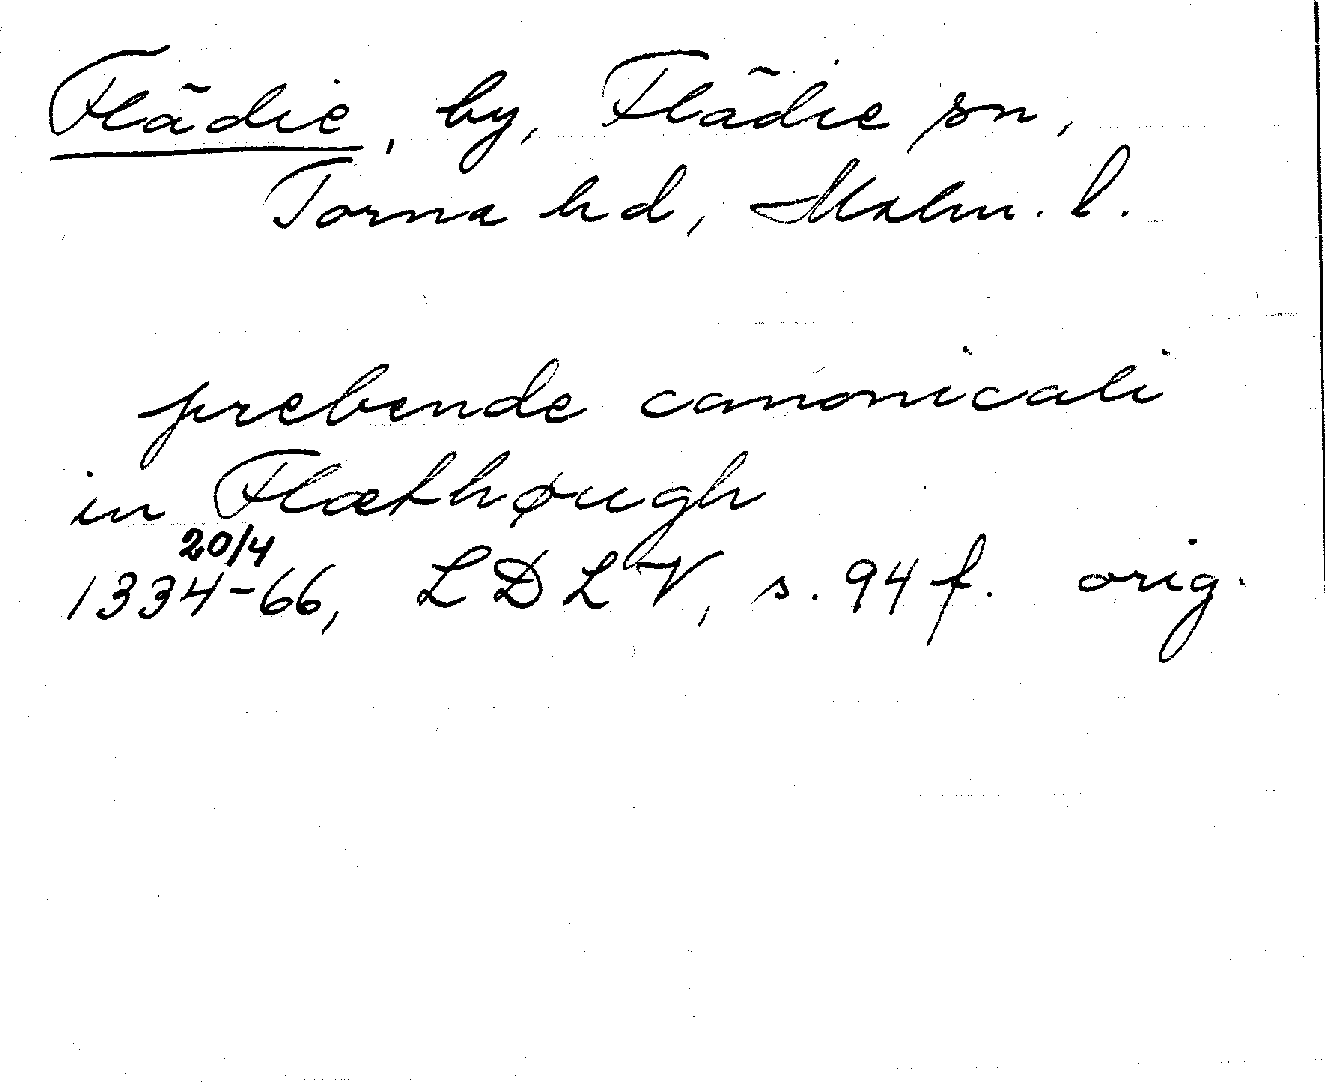 Flädie, by, Flädie sn,
Torna hd, Malm. l.
prebende canonicali
in Flæthøugh
20/4
1334-66, LDLV, s. 94 f. orig.